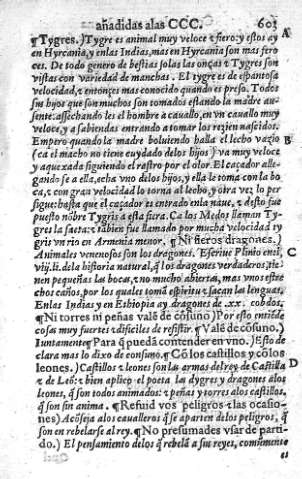 añadidas alas CCC. 603
¶Tygres.) Tygre es animal muy veloce ⁊ fiero: y estos ay A
en Hyrcania, y enlas Indias, mas en Hyrcania son mas fero
ces. De todo genero de bestias solas las onças ⁊ Tygres son
vistas con veriedad de manchas. El tygre es de espantosa
velocidad, ⁊ entonçes mas conocido quando es preso. Todos
sus hijos que son muchos son tomados estando la madre au-
sente: assechando les el hombre a cauallo, en vn cauallo muy
veloce, y a sabiendas entrando a tomar los rezien nascidos.
Empero quando la madre boluiendo halla el lecho vazio B
(ca el macho no tiene cuydado delos hijos) va muy veloce
y aquexada siguiendo el rastro por el olor. El caçador alle-
gando se a ella, echa vno delos hijos, y ella le toma con la bo
ca, ⁊ con gran velocidad lo torna al lecho, y otra vez lo per
sigue: hasta que el caçador es entrado enla naue, ⁊ desto fue
puesto nõbre Tygris a esta fiera. Ca los Medos llaman Ty-
gris la saeta: ⁊ tãbien fue llamado por mucha velocidad ty
gris vn rio en Armenia menor. ¶Ni fieros dragones.)
Animales venenosos son los dragones. Escriue Plinio enel C
viij. li. dela historia natural, q̃ los dragones verdaderos, tie
nen pequeñas las bocas, ⁊ no mucho abiertas, mas vnos estre
chos caños, por los quales toman espiritu ⁊ sacan las lenguas.
Enlas Indias y en Ethiopia ay dragones de .xx. cobdos.
¶Ni torres ni peñas valẽ de cõsuno) Por esto entiẽde
cosas muy fuertes ⁊ difficiles de resistir. ¶Valẽ de cõsuno.)
Iuntamente ¶Para q̃ puedã contender en vno.) Esto de
clara mas lo dixo de consuno. ¶Cõ los castillos y cõ los
leones.) Castillos ⁊ leones son las armas del rey de Castilla D
⁊ de Leõ: ⁊ bien aplico el poeta las dygres y dragones alos
leones, q̃ son todos animados: ⁊ peñas y torres alos castillos,
q̃ son sin anima. ¶Refuid vos peligros ⁊ las ocasio
nes) Acõseja alos caualleros q̃ se aparten delos peligros, q̃
son en rebelarse al rey. ¶No presumades vsar de parti-
do.) El pensamiento delos q̃ rebelã a sus reyes, comũmente
es